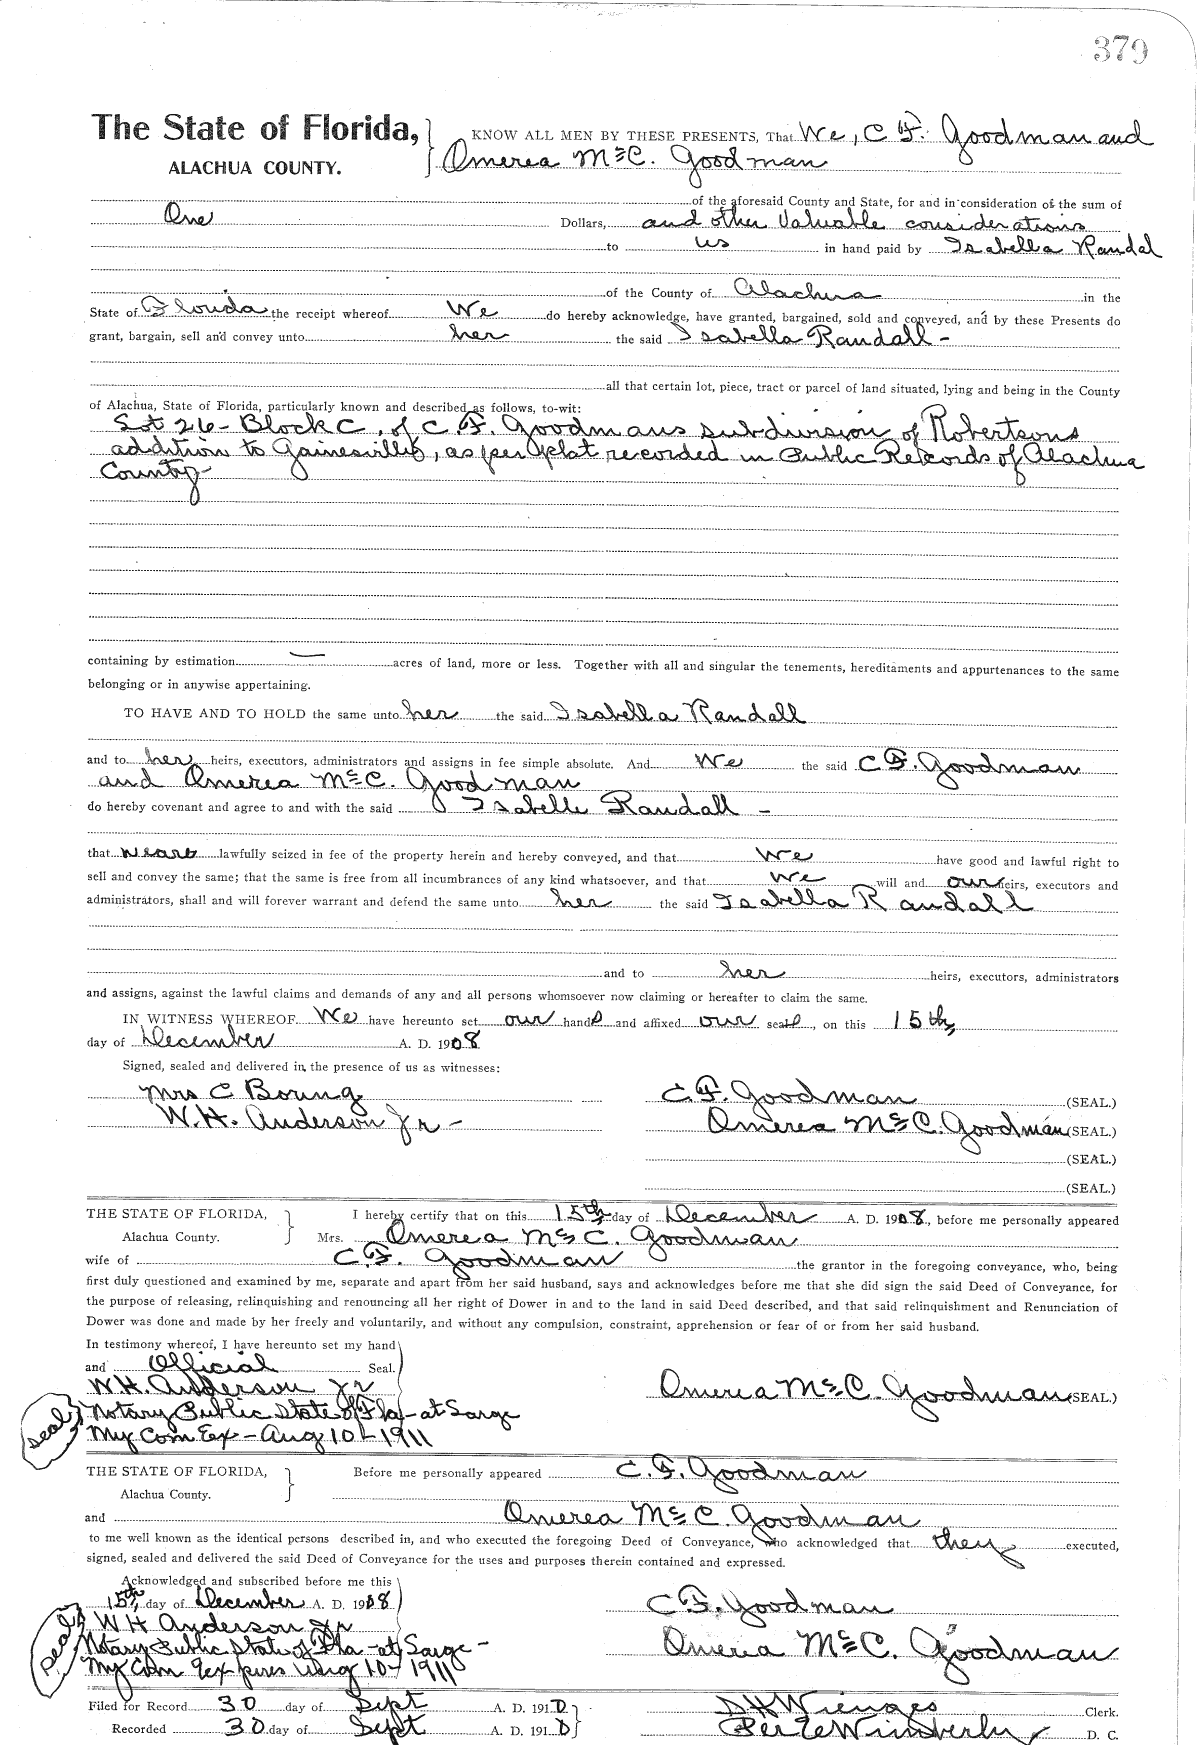 379
The State of Florida, KNOW ALL MEN BY THESE PRESENTS, That We, C. F. Goodman and
ALACHUA COUNTY. Omerea McC. Goodman
of the aforesaid County and State, for and in consideration of the sum of
One Dollars, and other Valuable considerations
to us in hand paid by Isabella Randal
of the County of Alachua in the
State of Florida the receipt whereof We do hereby acknowledge, have granted, bargained, sold and conveyed, and by these Presents do
grant, bargain, sell and convey unto her the said Isabella Randall -
all that certain lot, piece, tract or parcel of land situated, lying and being in the County
of Alachua, State of Florida, particularly known and described as follows, to-wit:
Lot 26 - Block C. of C. F. Goodmans subdivision of Robertsons
addition to Gainesville, as per plat recorded in Public Records of Alachua
County -
containing by estimation — acres of land, more or less. Together with all and singular the tenements, hereditaments and appurtenances to the same
belonging or in anywise appertaining.
TO HAVE AND TO HOLD the same unto her the said Isabella Randall
and to her heirs, executors, administrators and assigns in fee simple absolute. And We the said C. F. Goodman
and Omerea McC. Goodman
do hereby covenant and agree to and with the said Isabelle Randall -
that we are lawfully seized in fee of the property herein and hereby conveyed, and that We have good and lawful right to
sell and convey the same; that the same is free from all incumbrances of any kind whatsoever, and that We will and our heirs, executors and
administrators, shall and will forever warrant and defend the same unto her the said Isabella Randall
and to her heirs, executors, administrators
and assigns, against the lawful claims and demands of any and all persons whomsoever now claiming or hereafter to claim the same.
IN WITNESS WHEREOF We have hereunto set our hands and affixed our seals, on this 15th,
day of December A. D. 1908
Signed, sealed and delivered in the presence of us as witnesses:
Mrs C Boring C. F. Goodman (SEAL.)
W. H. Anderson Jr - Omerea McC. Goodman (SEAL.)
(SEAL.)
(SEAL.)
THE STATE OF FLORIDA, I hereby certify that on this 15th, day of December A. D. 1908, before me personally appeared
Alachua County. Mrs. Omerea McC. Goodman
wife of C. F. Goodman the grantor in the foregoing conveyance, who, being
first duly questioned and examined by me, separate and apart from her said husband, says and acknowledges before me that she did sign the said Deed of Conveyance, for
the purpose of releasing, relinquishing and renouncing all her right of Dower in and to the land in said Deed described, and that said relinquishment and Renunciation of
Dower was done and made by her freely and voluntarily, and without any compulsion, constraint, apprehension or fear of or from her said husband.
In testimony whereof, I have hereunto set my hand
and Official Seal.
W. H. Anderson Jr Omerea McC. Goodman (SEAL)
(seal) Notary Public State of Fla - at Large
My Com Ex - Aug 10 - 1911
THE STATE OF FLORIDA, Before me personally appeared C. F. Goodman
Alachua County.
and Omerea McC. Goodman
to me well known as the identical persons described in, and who executed the foregoing Deed of Conveyance, who acknowledged that they executed,
signed, sealed and delivered the said Deed of Conveyance for the uses and purposes therein contained and expressed.
Acknowledged and subscribed before me this
15th, day of December A. D. 1908 C. F. Goodman
(seal) W H Anderson Jr
Notary Public State of Fla - at Large - Omerea McC. Goodman
My Com Expires Aug 10 - 1911
Filed for Record 30 day of Sept A. D. 1910 S H Wienges Clerk.
Recorded 30 day of Sept A. D. 1910 Per E Wimberly D. C.